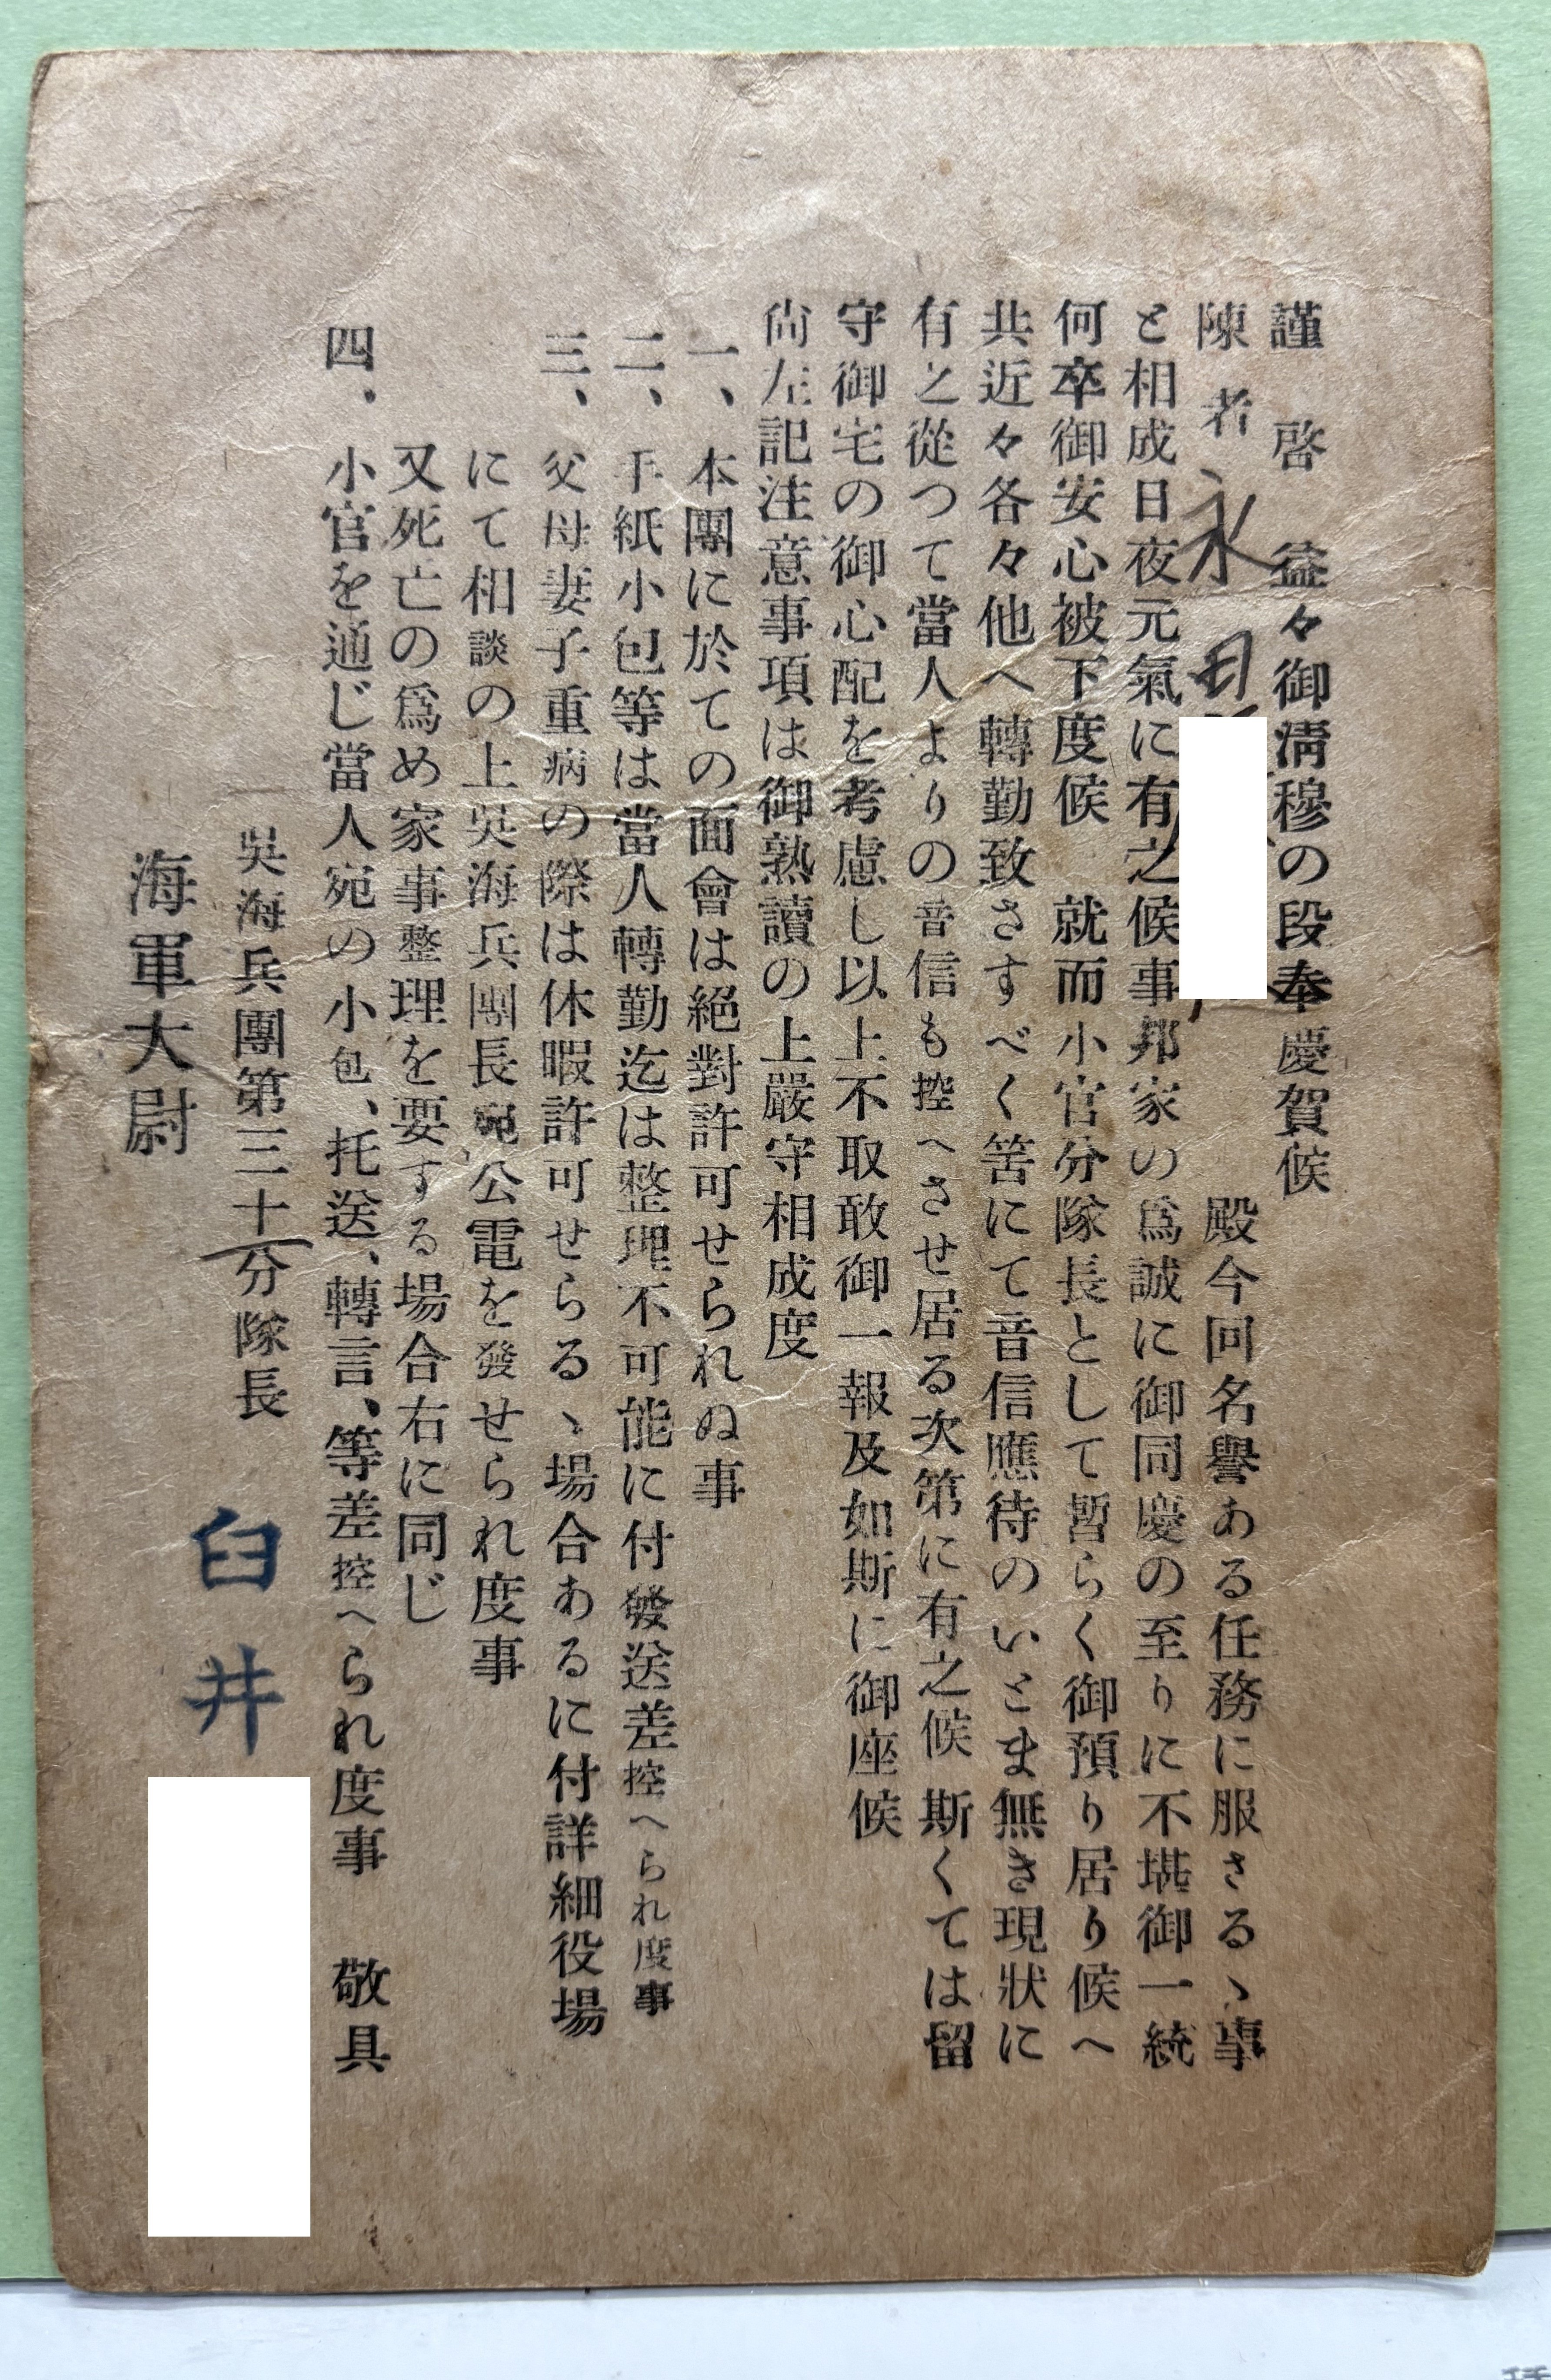 謹啓　益々御淸穆の段奉慶賀候
陳者永田　殿今回名譽ある任務に服さるゝ事
と相成日夜元氣に有之候事邦家の爲誠に御同慶の至りに不堪御一統
何卒御安心被下度候　就而小官分隊長として暫らく御預り居り候へ
共近々各々他へ轉勤致さすべく筈にて音信應待のいとま無き現狀に
有之從つて當人よりの音信も控へさせ居る次第に有之候　斯くては留
守御宅の御心配を考慮し以上不取敢御一報及如斯に御座候
尙左記注意事項は御熟讀の上嚴守相成度
一、本團に於ての面會は絕對許可せられぬ事
二、手紙小包等は當人轉勤迄は整理不可能に付發送差控へられ度事
三、父母妻子重病の際は休暇許可せらるゝ場合あるに付詳細役場
にて相談の上吳海兵團長宛公電を發せられ度事
又死亡の爲め家事整理を要する場合右に同じ
四、小官を通じ當人宛の小包、托送、轉言、等差控へられ度事　敬具
吳海兵團第三十分隊長
海軍大尉　臼井